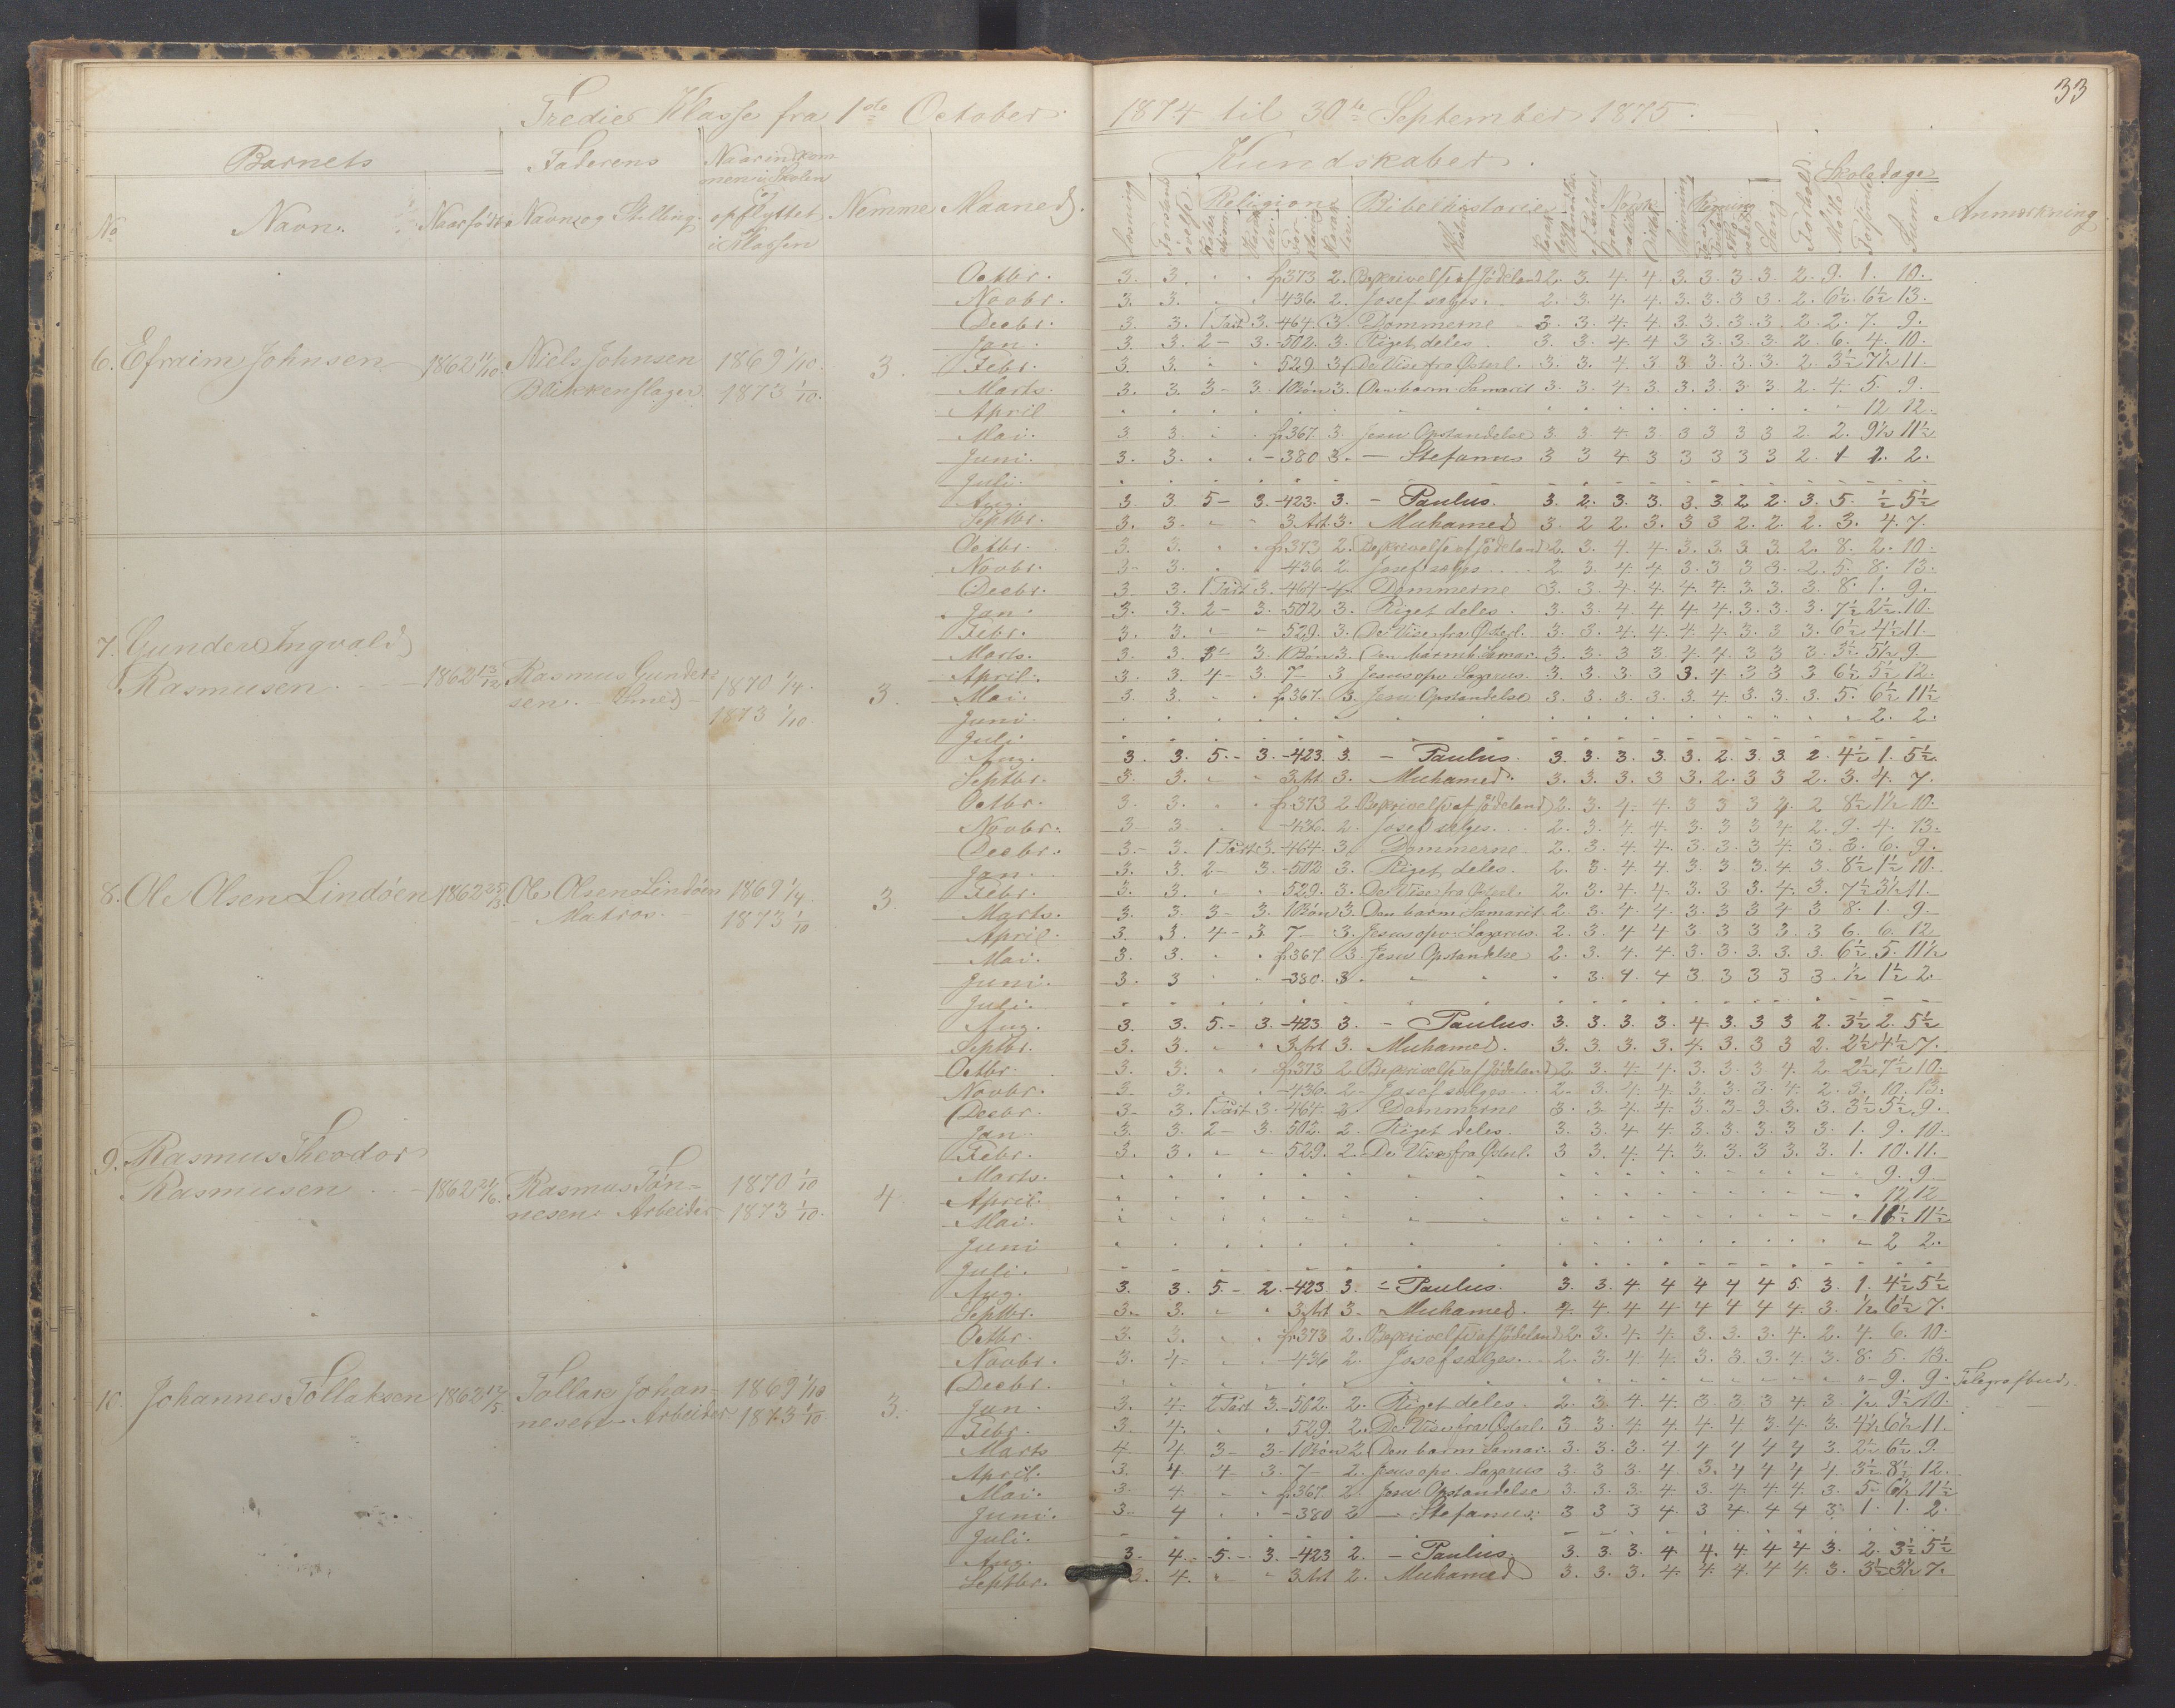 33
Tredie Klasse fra 1ste October 1874 til 30te September 1875.
Barnets Faderens Naar indkommen i Skolen og opflyttet i Klassen Nemme Maaned Kundskaber. Forhold Skoledage Anmærkning
No Navn. Naar født Navn og Stilling. Læsning Religion Bibelhistorie Norsk Skrivning Regning Sang Mødte Forsømte Sum
6. Efraim Johnsen 1862 11/10. Niels Johnsen 1869 1/10. 3.
Blikkenslager 1873 1/10.
Octbr. 3. 3. . . fr 373 2. Beskrivelse af Jødeland 2. 3. 4. 4. 3. 3. 3. 3. 2. 9. 1. 10.
Novbr. 3. 3. . . -436. 2. Josef sælges. 2. 3. 4. 4. 3. 3. 3 3. 2. 6½. 6½ 13.
Decbr. 3. 3. 1 Part 3. -464. 3. Dommerne 3. 3. 4. 4. 3. 3. 3. 3. 2. 2. 7. 9.
Jan. 3. 3. 2 - 3. -502. 3. Riget deles. 3. 3. 4. 4 3. 3. 3. 3. 2. 6. 4. 10.
Febr. 3. 3. . . 529. 3. De Vise fra Østerl. 3. 3. 4. 3 3 3. 3. 3. 2. 3½ 7½ 11.
Marts. 3. 3. 3 - 3. 1 Bøn 3. Den barm. Samarit 3. 3. 4. 3. 3. 3. 3. 3. 2. 4. 5. 9.
April 12 12.
Mai. 3 3. . . fr 367. 3. Jesu Opstandelse 3. 3 4. 3 3 3 3 3 2. 2. 9½ 11½
Juni. 3. 3. . . -380 3. - Stefanus 3 3 4 3 3 3 3 3 2. 1 1. 2.
Juli.
Aug. 3. 3 5 - 3. -423. 3. - Paulus. 3. 2. 3. 3. 3. 3 2 2. 3. 5. ½ 5½
Septbr. 3. 3. . . 3 Art. 3. Muhamed 3. 2 2. 3. 3 3 2. 2. 2. 3. 4. 7.
7. Gunder Ingvald
Rasmusen. 1862 13/12 Rasmus Gundersen. - Smed 1870 1/4. 3.
1873 1/10.
Octbr. 3. 3. . . fr 373 2. Beskrivelse af Jødeland 2. 3. 4. 4. 3. 3. 3. 3. 2. 8. 2. 10.
Novbr. 3 3. . . -436 2 Josef sælges 2. 3. 4. 4 3. 3 3 3. 2. 5. 8. 13.
Decbr. 3 3. 1 Part 3. -464 4. Dommerne 3. 3. 4. 4. 4. 4. 3. 3. 3. 8. 1. 9.
Jan. 3. 3. 2 - 3. -502 3. Riget deles. 3. 3. 4 4 4. 4. 3. 3. 3. 7½ 2½ 10.
Febr. 3. 3. . . 529. 3. De Vise fra Østerl. 3. 3. 4. 4. 4. 4. 3. 3 3. 6½ 4½ 11.
Marts. 3. 3 3 - 3. 1 Bøn 3. Den barmh. Samar. 3. 3. 3 3. 4. 4 3 3 3. 3½. 5½ 9
April. 3. 3. 4 - 3. 7 - 3 Jesus opv. Lazarus. 3. 3. 3. 3 3. 4 3 3 3 6½ 5½ 12.
Mai. 3 3. . . fr 367. 3. Jesu Opstandelse 3. 3. 3. 3. 3. 4 3. 3. 3. 5. 6½ 11½
Juni 2. 2.
Juli
Aug. 3. 3. 5. - 3. -423. 3. - Paulus. 3. 3. 3. 3. 3. 2. 3. 3. 2. 4½ 1. 5½
Septbr. 3. 3. . . 3 Art. 3. Muhamed. 3. 3. 3. 3 3. 2. 3 3 2. 3. 4. 7.
8. Ole Olsen Lindöen 1862 25/3. Ole Olsen Lindöen 1869 1/4. 3.
- Matros. - 1873 1/10
Octbr. 3. 3. . . fr 373 2. Beskrivelse af Jødeland 2. 3. 4. 4. 3 3 3 4. 2 8½ 1½ 10.
Novbr. 3 3 . . -436. 2. Josef sælges. 2. 3. 4. 4. 3. 3 3 4. 2. 9. 4. 13.
Decbr. 3. 3. 1 Part 3. -464. 3. Dommerne 2. 3. 4. 4. 3. 3. 3 4. 3. 3. 6. 9.
Jan. 3. 3. 2 - 3. -502 3. Riget deles. 2. 3. 4 4 3. 3 3. 4 3. 8½ 1½ 10.
Febr. 3. 3. . . 529. 3. De Vise fra Østerl. 2. 3. 4. 4. 3. 3 3. 4. 3. 7½ 3½ 11
Marts. 3. 3. 3 - 3. 1 Bøn 3. Den barm. Samarit 2. 3. 4. 4. 3. 3 3 4 3 8. 1. 9.
April. 3. 3. 4 - 3. 7 - 3. Jesus opv. Lazarus. 2. 3. 4 4 3 3 3 3. 3 6. 6. 12
Mai. 3. 3. . . fr 367 3. Jesu Opstandelse 2. 3. 4. 4 3. 3. 3. 3. 3. 6½ 5. 11½
Juni. 3. 3 . . -380. 3. . 3. 4. 4 3 3 3 3 3. ½ 1½ 2.
Juli.
Aug. 3. 3. 5. - 3. -423 3. - Paulus. 3. 3. 3. 3. 4. 3. 3 3 2. 3½ 2. 5½
Septbr. 3. 3. . . 3 Art 3. Muhamed. 3. 3. 3. 3. 4. 3. 3 3 2. 2½ 4½ 7.
9. Rasmus Theodor
Rasmusen 1862 24/6. Rasmus Tönnesen Arbeider 1870 1/10 4.
1873 1/10.
Octbr. 3. 3. . . fr 373 2. Beskrivelse af Jødeland 2 3. 4. 4. 3. 3 3 4. 2. 2½ 7½ 10.
Novbr. 3 3. . . -436. 2 Josef sælges 2. 3. 4. 4. 3 3. 3. 4. 2. 3. 10. 13.
Decbr. 3 3. 1 Part 3. -464. 3. Dommerne 3. 3 4. 4. 3. 3 3. 3. 3. 3½ 5½ 9.
Jan. 3. 3. 2 - 3. 502. 2. Riget deles. 3. 3. 4 4. 3. 3. 3. 3 3. 1. 9. 10.
Febr. 3. 3. . . 529. 2. De Vise fra Østerl. 3 3 4. 4. 3. 3. 3. 3. 3. 1. 10. 11.
Marts. 9. 9.
April. 12 12
Mai. 11½ 11½
Juni 2 2.
Juli.
Aug. 3. 3. 5. - 2. -423 3. - Paulus. 3. 3. 4. 4 4 4 4 5. 3. 1. 4½ 5½
Septbr. 3. 3. . . 3 Art 3. Muhamed. 4. 4. 4 4 4 4 4 4. 3. ½ 6½ 7.
10. Johannes Tollaksen 1862 12/5. Tallak Johannesen - Arbeider 1869 1/10 3.
1873 1/10.
Octbr. 3. 3. . . fr 373 2. Beskrivelse af Jødeland 2. 3. 4. 4. 3. 3. 3. 4. 2. 4. 6. 10.
Novbr. 3. 4. . . -436 2. Josef sælges. 2. 3. 4. 4. 3. 3. 3. 4. 3. 8. 5. 13.
Decbr. 9. 9. Telegrafbud.
Jan. 3. 4. 2 Part 3. -502. 2. Riget deles. 2. 3. 4. 4. 3. 3 3 4. 3. ½ 9½ 10.
Febr. 3. 4. . . 529. 2. De Vise fra Østerl. 3. 3. 4. 4. 4. 4 3. 4. 3. 4½ 6½ 11.
Marts 4. 4. 3 - 3 - 1 Bøn 2. Den barm. Samar. 3. 3. 3. 4. 4 4 4 4 3. 2½ 6½ 9.
April. 3. 4. 4 3. 7 - 2. Jesus opv. Lazarus 3. 3 3. 4. 3. 4 4 4 4 3½ 8½ 12.
Mai. 3. 4. . . fr 367. 2. Jesu Opstandelse 3. 3. 3. 4 3. 4. 4. 4. 3. 5 6½ 11½
Juni. 3. 4 . . -380 2 - Stefanus. 3 3 3 4. 3 4. 4 4 3. 1. 1. 2.
Juli.
Aug. 3. 4. 5. - 3. -423 2. - Paulus. 3. 3. 3. 4. 4. 4. 4 4 3. 2. 3½ 5½
Septbr. 3. 4. . . 3 Art 2. Muhamed 3. 3. 3. 4. 4. 4. 4 4. 3. 3½ 3½ 7.